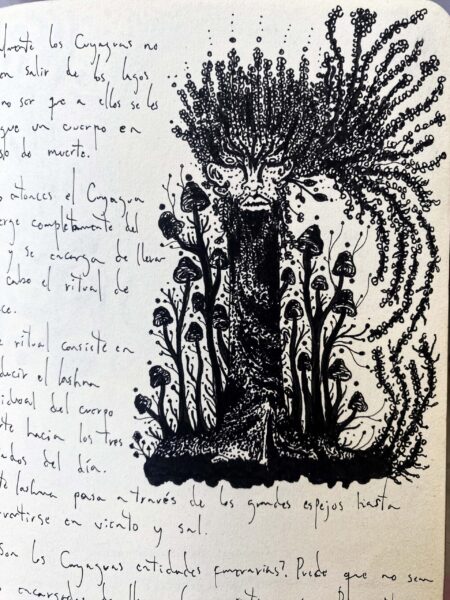 lmente los Cuyaguas no
salir de los lagos
no ser que a ellos se les
gue un cuerpo en
so de muerte.
entonces el Cuyagua
erge completamente del
y se encarga de llevar
cabo el ritual de
ce.
ritual consiste en
ducir el lashma
idual del cuerpo
te hacia los tres
ados del día.
te lashma pasa a través de los grandes espejos hasta
vertirse en viento y sal.
son los Cuyaguas entidades funerarias? Puede que no sean